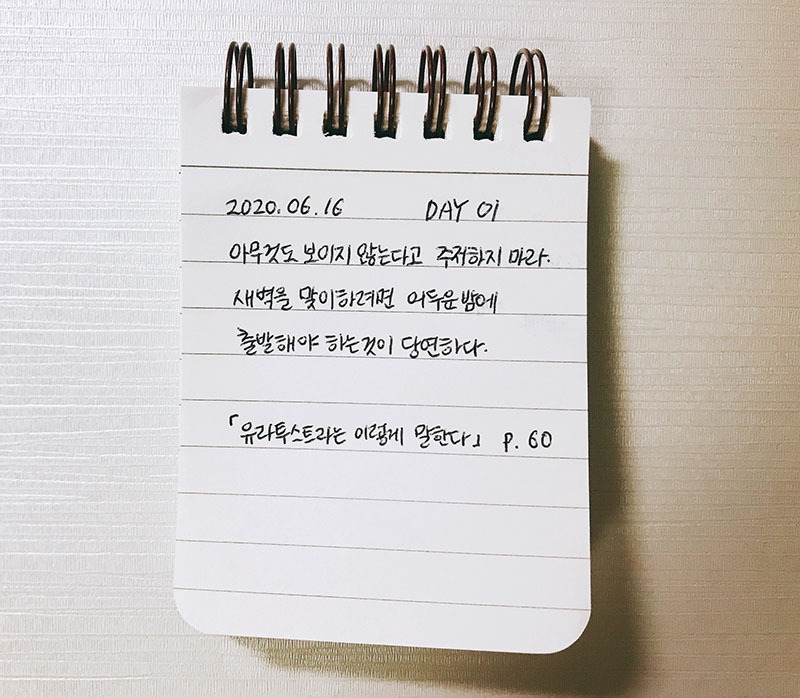 2020.06.16 DAY 01
아무것도 보이지 않는다고 주저하지 마라.
새벽을 맞이하려면 어두운 밤에
출발해야 하는것이 당연하다.
「유라투스트라는 이렇게 말한다」 p. 60